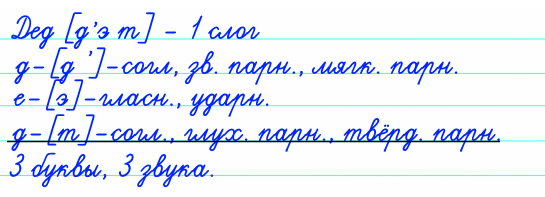 Дед [д'э т] - 1 слог
д-[д ']-согл, зв. парн., мягк. парн.
е-[э]-гласн., ударн.
д-[т]-согл., глух. парн., твёрд. парн.
3 буквы, 3 звука.